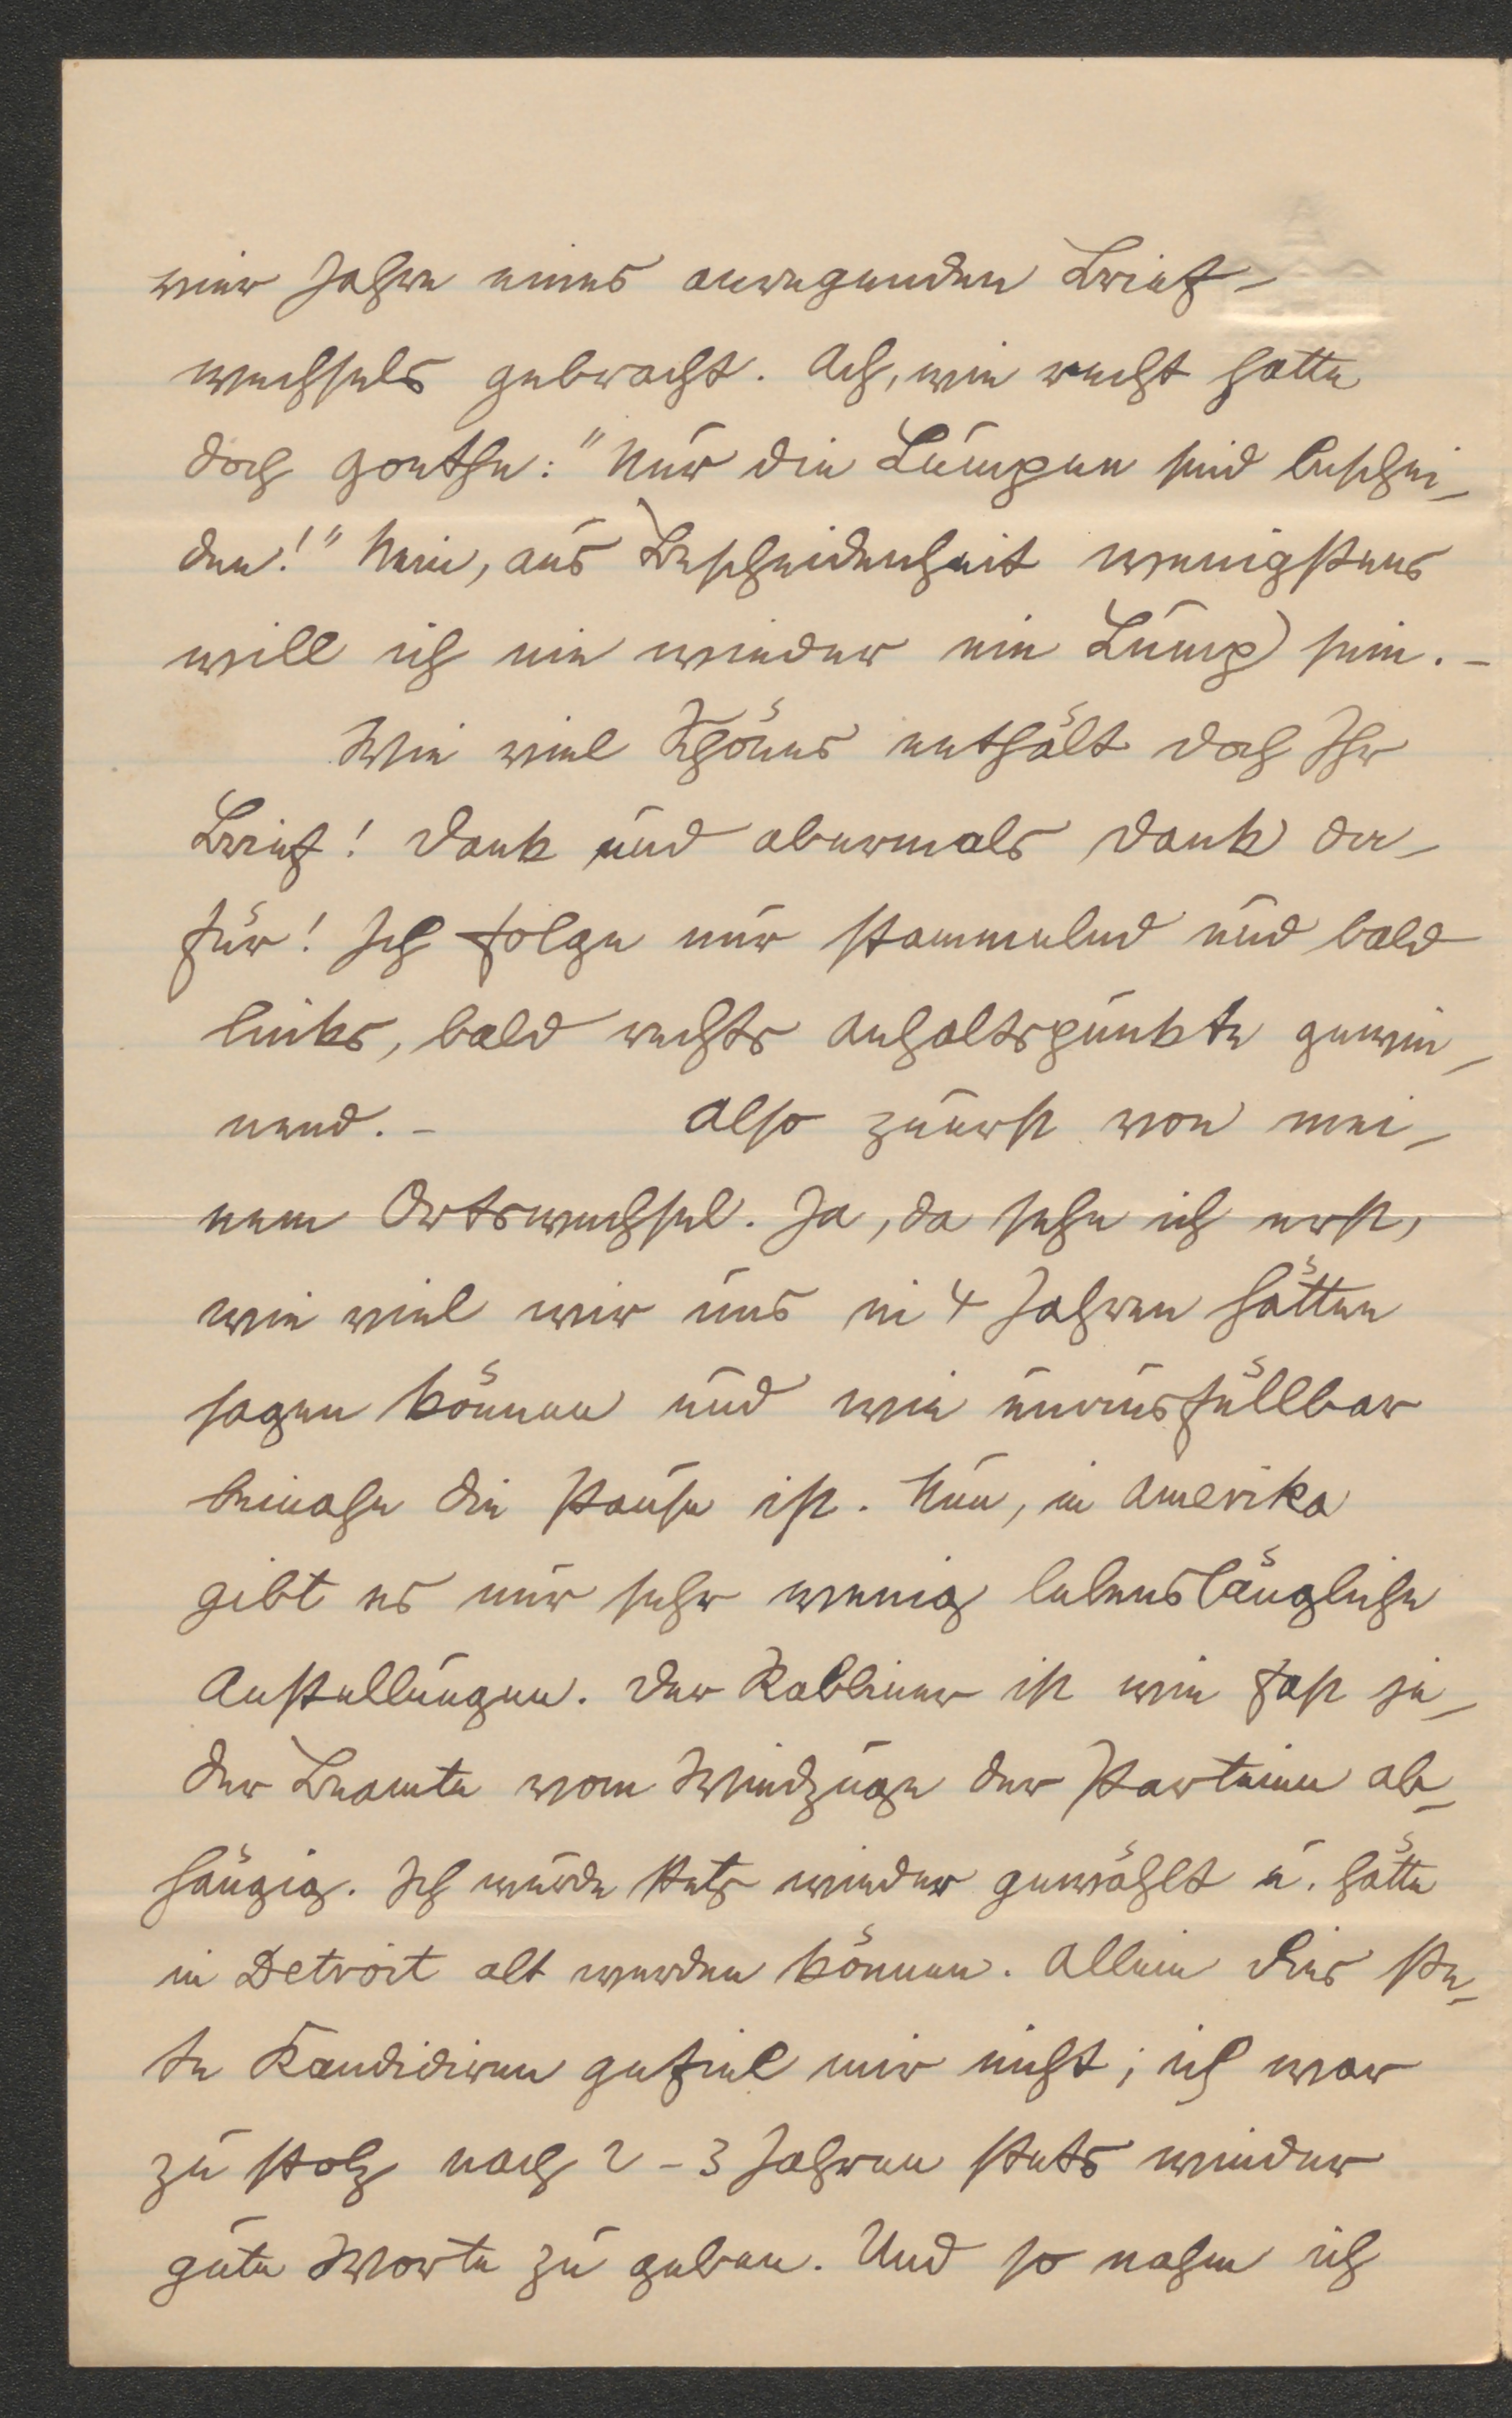 vier Jahre eines anregenden Brief-
wechsels gebracht. Ach, wie recht hatte
doch Goethe: "Nur die Lumpen sind beschei-
den!" Nein, aus Bescheidenheit wenigstens
will ich nie wieder ein Lump sein. -
Wie viel Schönes enthält doch Ihr
Brief! Dank und abermals Dank da-
für! Ich folge nur stammelnd und bald
links, bald rechts Anhaltspunkte gewin-
nend. - Also zuerst von mei-
nem Ortswechsel. Ja, da sehe ich erst,
wie viel wir uns in 4 Jahren hätten
sagen können und wie unausfüllbar
beinahe die Pause ist. Nun, in Amerika
gibt es nur sehr wenig lebenslängliche
Anstellungen. Der Rabbiner ist wie fast je-
der Beamte vom Windzuge der Parteien ab-
hängig. Ich wurde stets wieder gewählt u. hätte
in Detroit alt werden können. Allein dies ste-
te Kandidiren gefiel mir nicht; ich war
zu stolz nach 2-3 Jahren stets wieder
gute Worte zu geben. Und so nahm ich